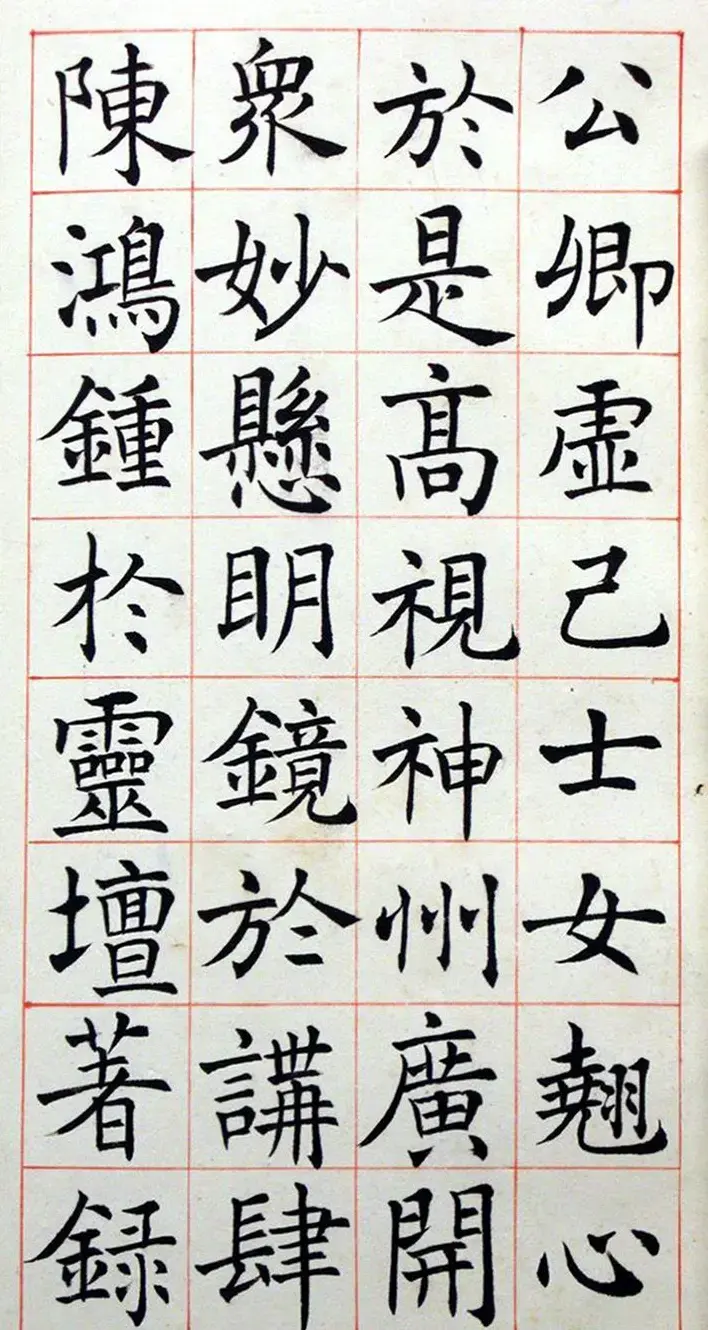 公卿虚己士女翹心
於是髙視神州廣開
衆妙懸明鏡於講肆
陳鴻鍾於靈壇著録